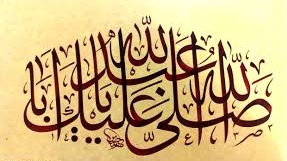 صلی الله علیك یا اباعبدالله